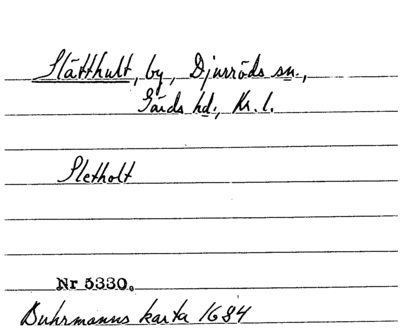 Slätthult, by, Djurröds sn.,
Gärds hd., Kr. l.
Sletholt
Nr 5330.
Buhrmanns karta 1684